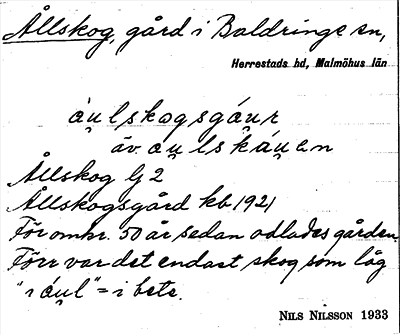 Ållskog, gård i Baldringe sn,
Herrestads hd, Malmöhus län
áu̯lskogsgáu̯r
äv. au̯lskáu̯en
Ållskog Gj2
Ållskogsgård kb 1921
För omkr. 50 år sedan odlades gården.
Förr var det endast skog som låg
"i áu̯l" = i bete.
NILS NILSSON 1933